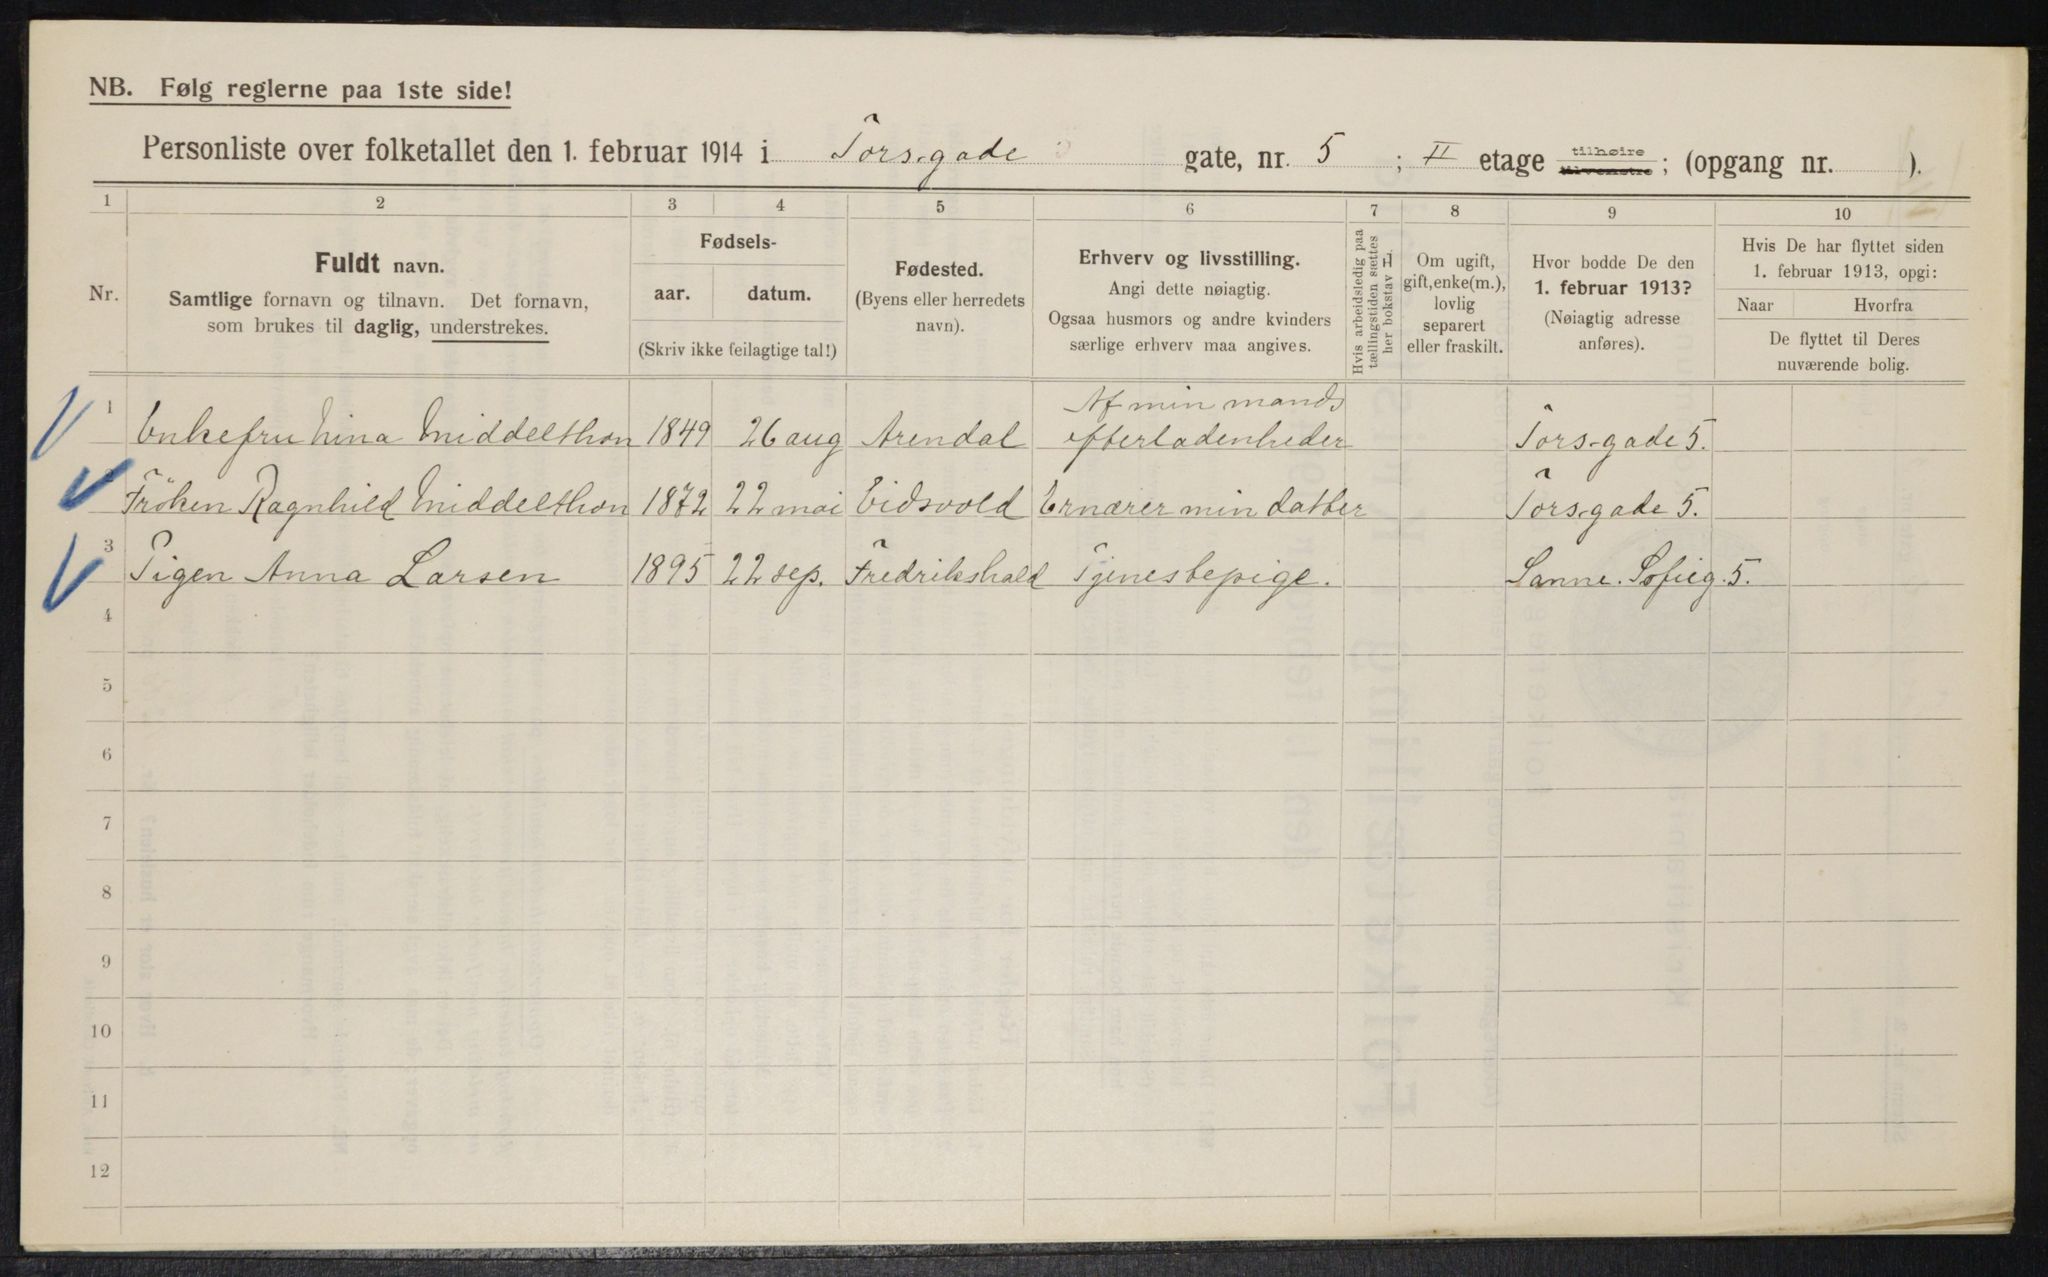 NB. Følg reglerne paa 1ste side!
Personliste over folketallet den 1. februar 1914 i Torsgade gate, nr. 5 ; II etage tilhøire tilvenstre ; (opgang nr. ).
1 2 3 4 5 6 7 8 9 10
Nr.
Fuldt navn.
Samtlige fornavn og tilnavn. Det fornavn,
som brukes til daglig, understrekes.
Fødsels-
aar. datum.
(Skriv ikke feilagtige tal!)
Fødested.
(Byens eller herredets
navn).
Erhverv og livsstilling.
Angi dette nøiagtig.
Ogsaa husmors og andre kvinders
særlige erhverv maa angives.
Hvis arbeidsledig paa
tællingstiden sættes
her bokstav L
Om ugift,
gift, enke(m.),
lovlig
separert
eller fraskilt.
Hvor bodde De den
1. februar 1913?
(Nøiagtig adresse
anføres).
Hvis De har flyttet siden
1. februar 1913, opgi:
Naar Hvorfra
De flyttet til Deres
nuværende bolig.
1 Enkefru Nina Middelthon 1849 26 aug Arendal Af min mands
efterladenheder Torsgade 5.
2 Fröken Ragnhild Middelthon 1872 22 mai Eidsvold Ernærer min datter Torsgade 5.
3 Pigen Anna Larsen 1895 22 sep. Fredrikshald Tjenestepige. Sanne. Sofieg. 5.
4
5
6
7
8
9
10
11
12